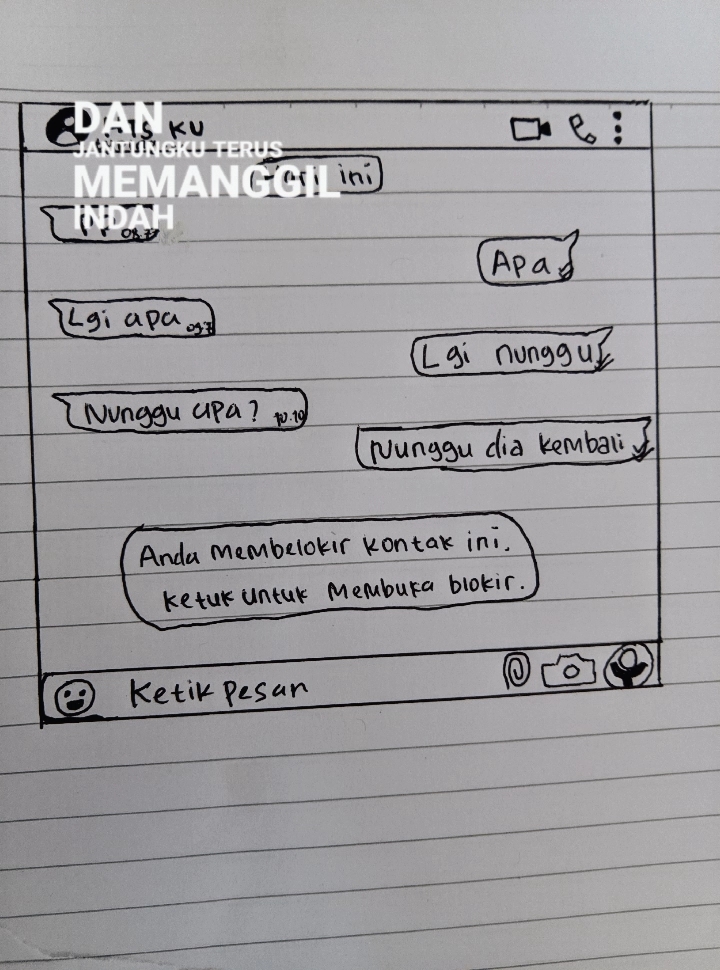 DAN
JANTUNGKU TERUS
MEMANGGIL
INDAH
KU
ini
Apa
Lgi apa
Lgi nunggu
Nunggu apa? 10.10
Nunggu dia kembali
Anda membelokir kontak ini.
Ketuk untuk Membuka blokir.
Ketik pesan